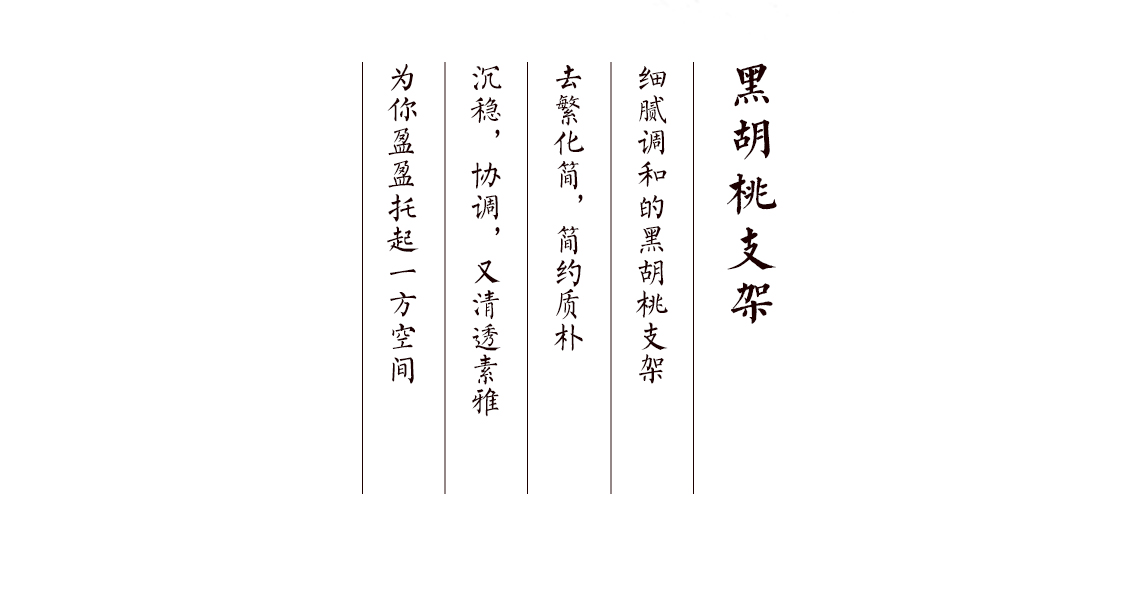 黑胡桃支架
细腻调和的黑胡桃支架
去繁化简，简约质朴
沉稳，协调，又清透素雅
为你盈盈托起一方空间